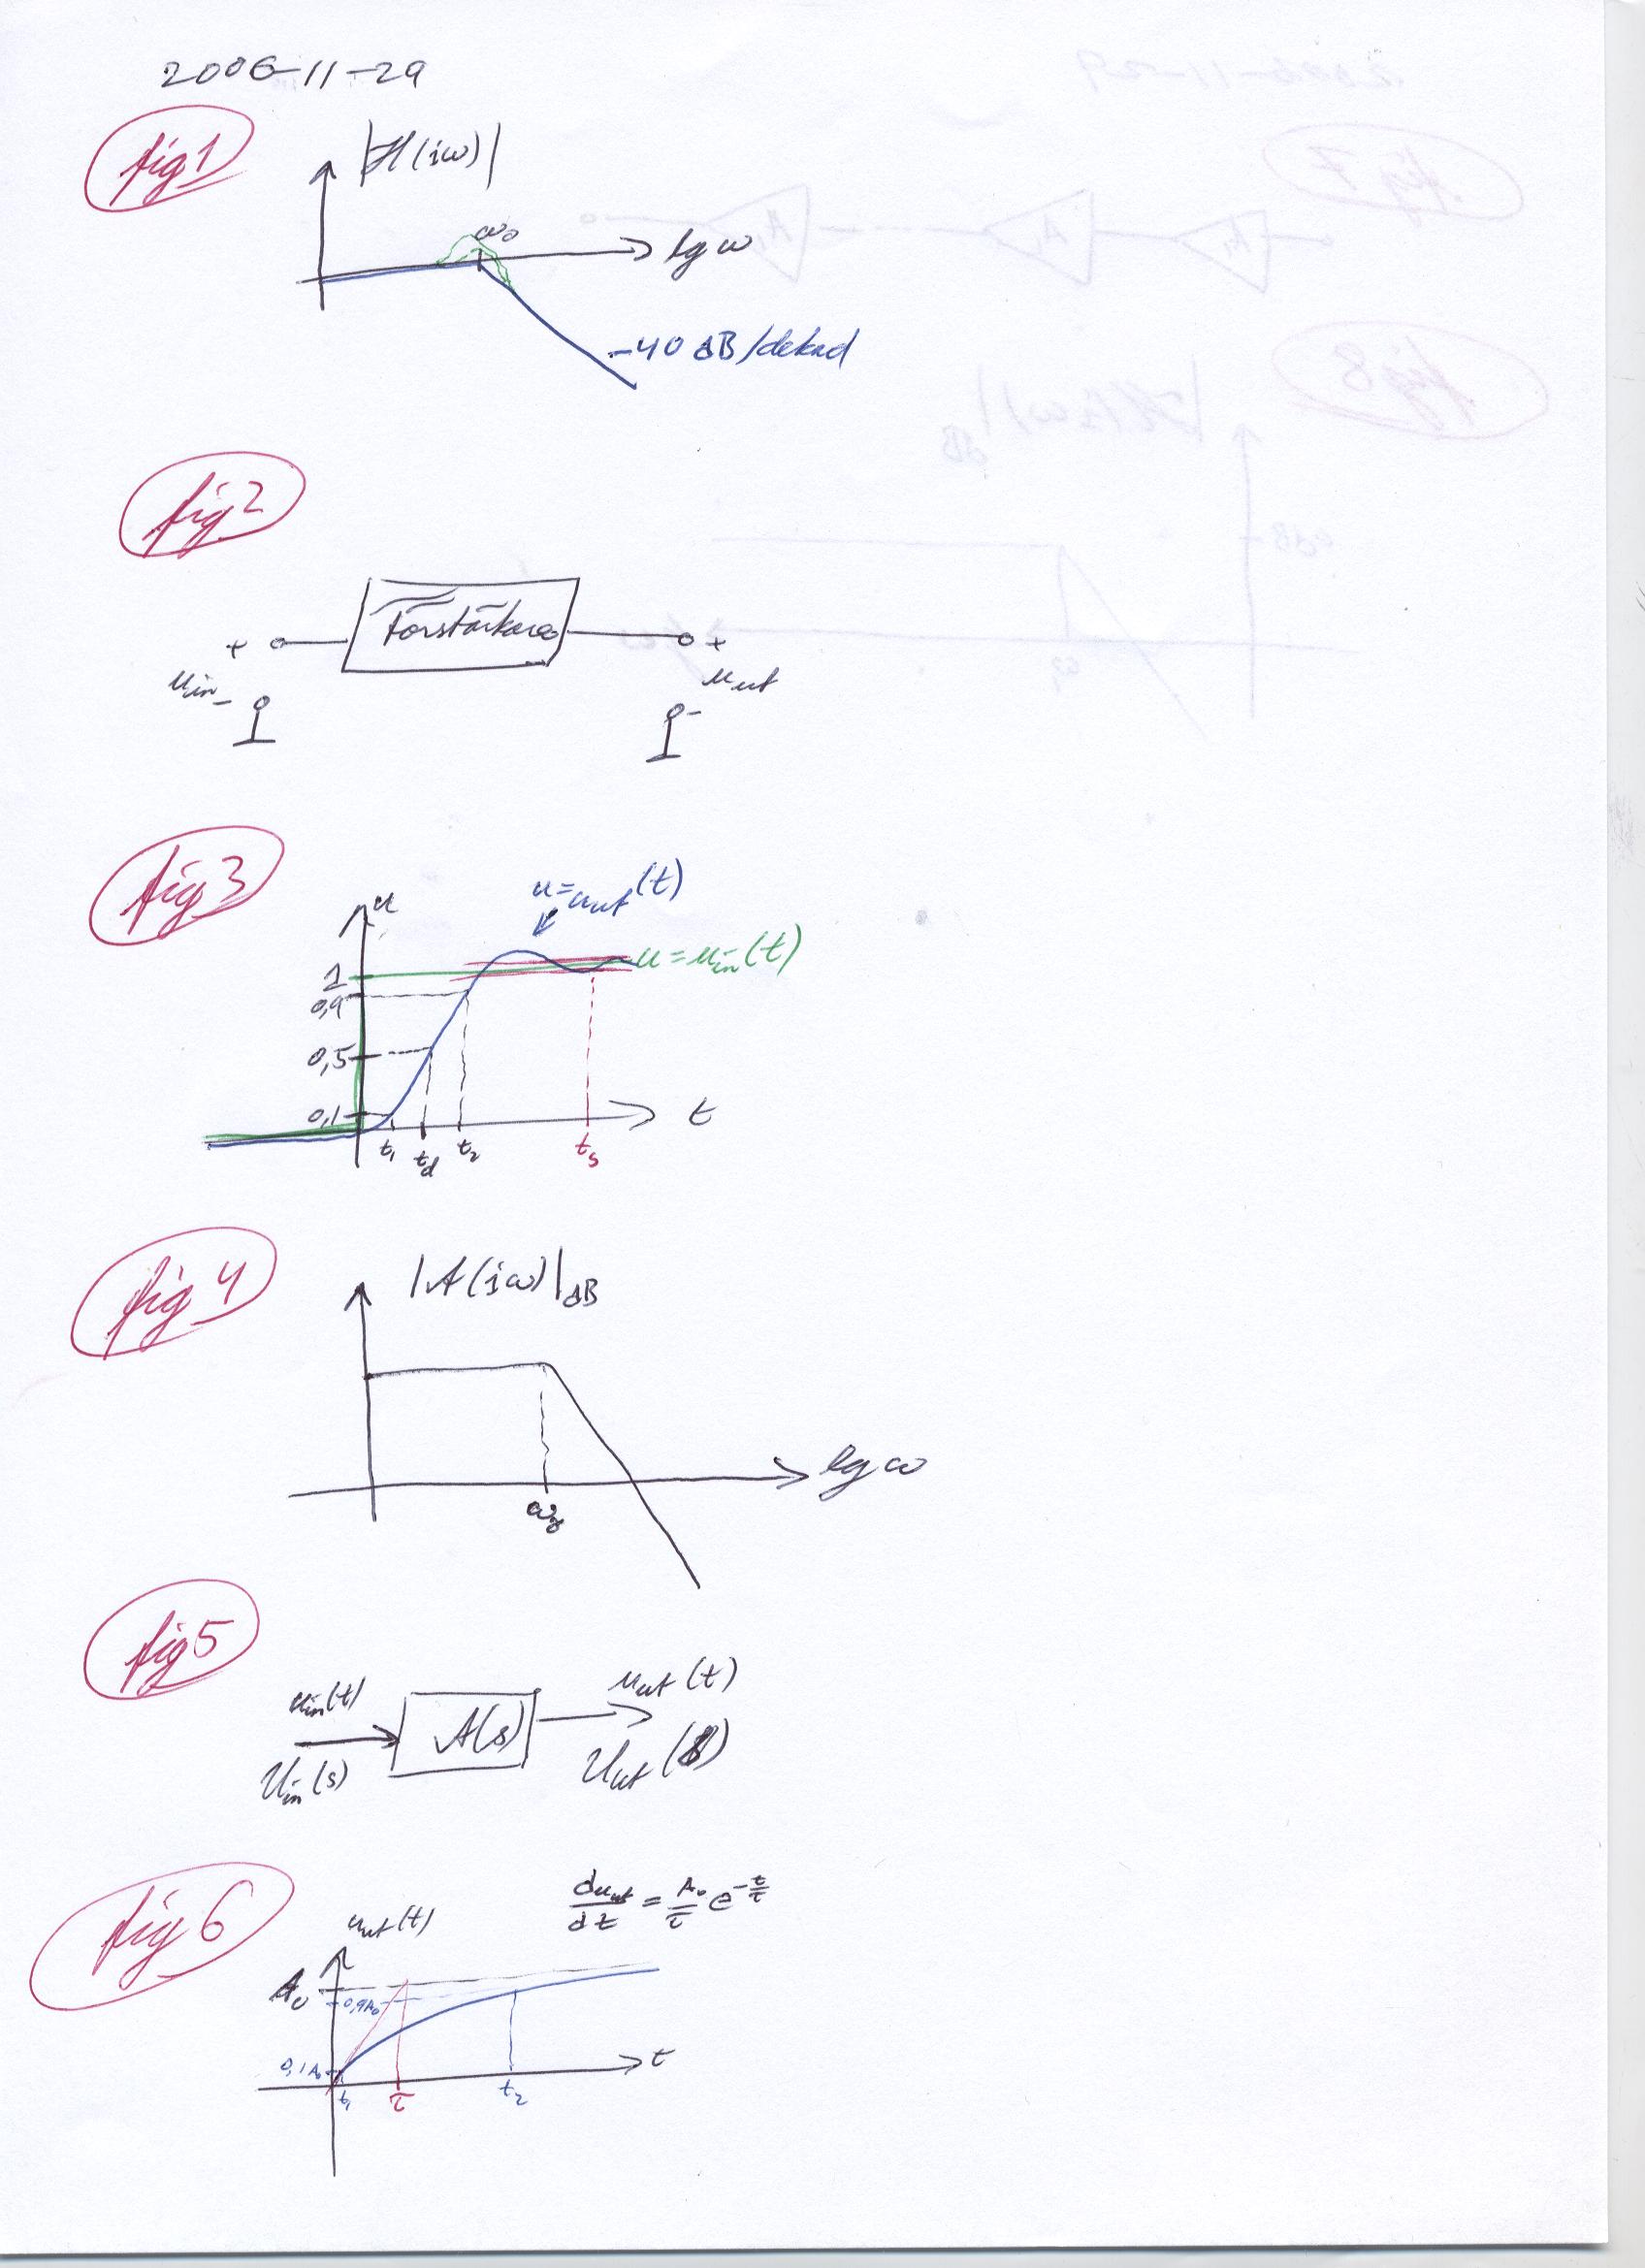 2006-11-29
fig 1
|H(iω)|
ω₀
lg ω
-40 dB/dekad
fig 2
Förstärkare
+
+
uin
-
uut
-
fig 3
u
u=uut(t)
u=uin(t)
1
0,9
0,5
0,1
t
t₁
td
t₂
ts
fig 4
|A(iω)|dB
lg ω
fig 5
uin(t)
A(s)
uut(t)
Uin(s)
Uut(s)
fig 6
duut/dt = A₀/τ e^(-t/τ)
uut(t)
A₀
0,9A₀
0,1A₀
t
t₁
τ
t₂